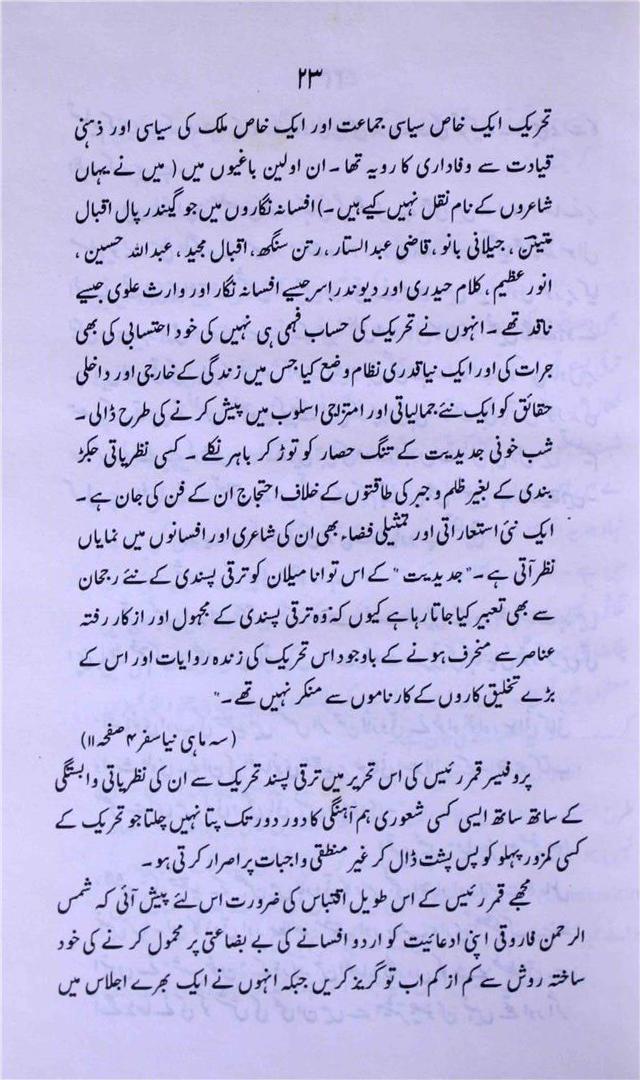 ۲۳
تحریک ایک خاص سیاسی جماعت اور ایک خاص ملک کی سیاسی اور ذہنی
قیادت سے وفاداری کا رویہ تھا۔ ان اولین باغیوں میں ( میں نے یہاں
شاعروں کے نام نقل نہیں کیے ہیں۔) افسانہ نگاروں میں جو گیندر پال اقبال
متین، جیلانی بانو، قاضی عبدالستار، رتن سنگھ، اقبال مجید، عبداللہ حسین،
انور عظیم، کلام حیدری اور دیوندراسر جیسے افسانہ نگار اور وارث علوی جیسے
ناقد تھے۔ انہوں نے تحریک کی حساب فہمی ہی نہیں کی خود احتسابی کی بھی
جرات کی اور ایک نیا قدری نظام وضع کیا جس میں زندگی کے خارجی اور داخلی
حقائق کو ایک نئے جمالیاتی اور امتزاجی اسلوب میں پیش کرنے کی طرح ڈالی۔
شب خونی جدیدیت کے تنگ حصار کو توڑ کر باہر نکلے۔ کسی نظریاتی جکڑ
بندی کے بغیر ظلم و جبر کی طاقتوں کے خلاف احتجاج ان کے فن کی جان ہے۔
ایک نئی استعاراتی اور تمثیلی فضاء بھی ان کی شاعری اور افسانوں میں نمایاں
نظر آتی ہے۔ "جدیدیت" کے اس توانا میلان کو ترقی پسندی کے نئے رجحان
سے بھی تعبیر کیا جاتا رہا ہے کیوں کہ وہ ترقی پسندی کے مجہول اور از کار رفتہ
عناصر سے منحرف ہونے کے باوجود اس تحریک کی زندہ روایات اور اس کے
بڑے تخلیق کاروں کے کارناموں سے منکر نہیں تھے۔"
(سہ ماہی نیا سفر ۴ صفحہ ۱۱)
پروفیسر قمر رئیس کی اس تحریر میں ترقی پسند تحریک سے ان کی نظریاتی وابستگی
کے ساتھ ساتھ ایسی کسی شعوری ہم آہنگی کا دور دور تک پتا نہیں چلتا جو تحریک کے
کسی کمزور پہلو کو پس پشت ڈال کر غیر منطقی واجبات پر اصرار کرتی ہو۔
مجھے قمر رئیس کے اس طویل اقتباس کی ضرورت اس لئے پیش آئی کہ شمس
الرحمن فاروقی اپنی ادعائیت کو اردو افسانے کی بے بضاعتی پر محمول کرنے کی خود
ساختہ روش سے کم از کم اب تو گریز کریں جبکہ انہوں نے ایک بھرے اجلاس میں